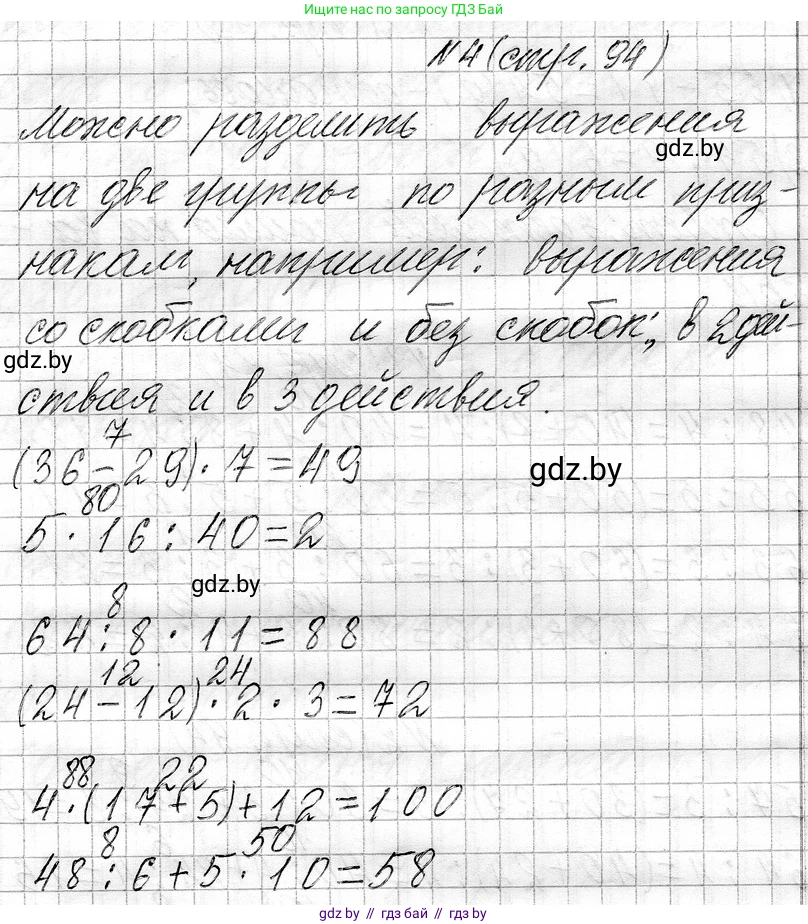 Ищите нас по запросу ГДЗ Бай
№4 (стр. 94)
Можно разделить выражения
gdz.by
на две группы по разным приз-
накам, например: выражения
со скобками и без скобок; в 2 дей-
gdz.by
ствия и в 3 действия.
7
(36 - 29) · 7 = 49
gdz.by
80
5 · 16 : 40 = 2
gdz.by
8
64 : 8 · 11 = 88
12 24
(24 - 12) · 2 · 3 = 72
88 22
4 · (17 + 5) + 12 = 100
8 50
48 : 6 + 5 · 10 = 58
gdz.by // gdz.by // gdz.by